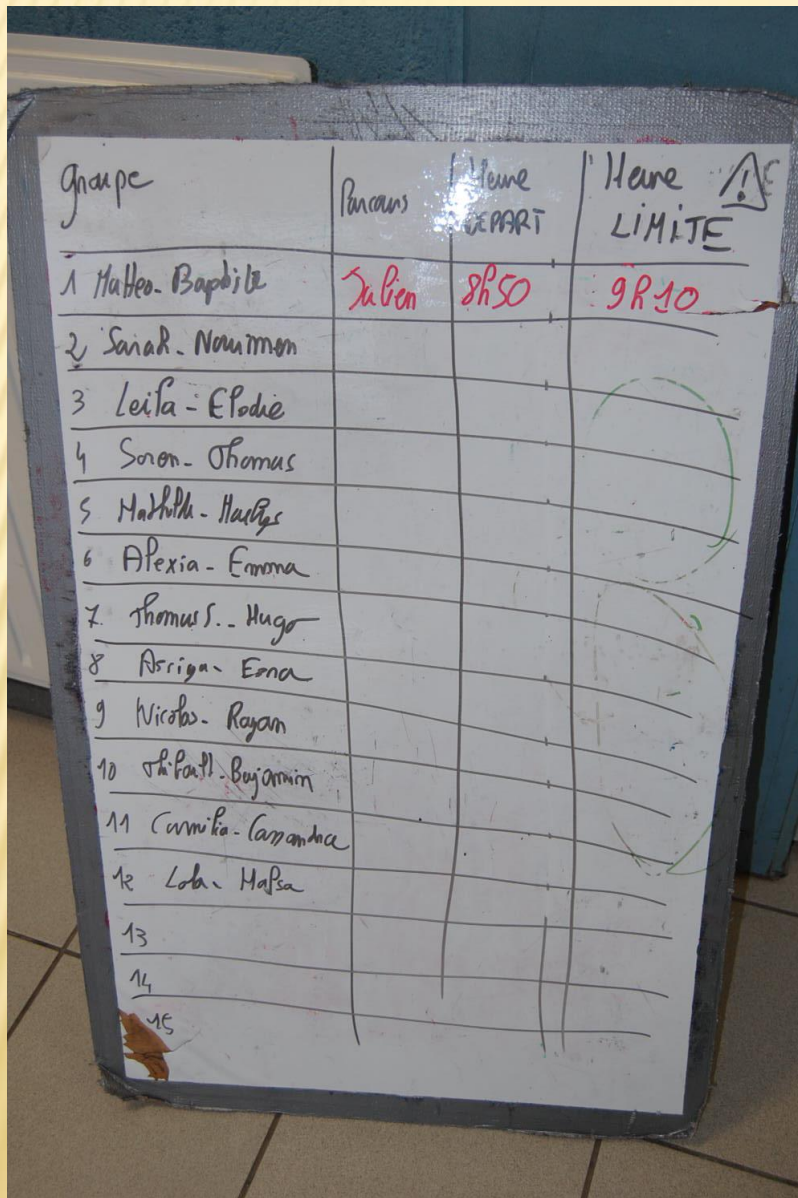 groupe Parcours Heure DEPART Heure LIMITE
1 Matteo - Baptiste Julien 8h50 9h10
2 Sarah - Nourmen
3 Leila - Elodie
4 Soren - Thomas
5 Mathilde - Maelys
6 Alexia - Emma
7 Thomas S. - Hugo
8 Esma
9 Nicolas - Rayan
10 Thibault - Benjamin
11 Camilia - Cassandra
12 Lola - Hafsa
13
14
15